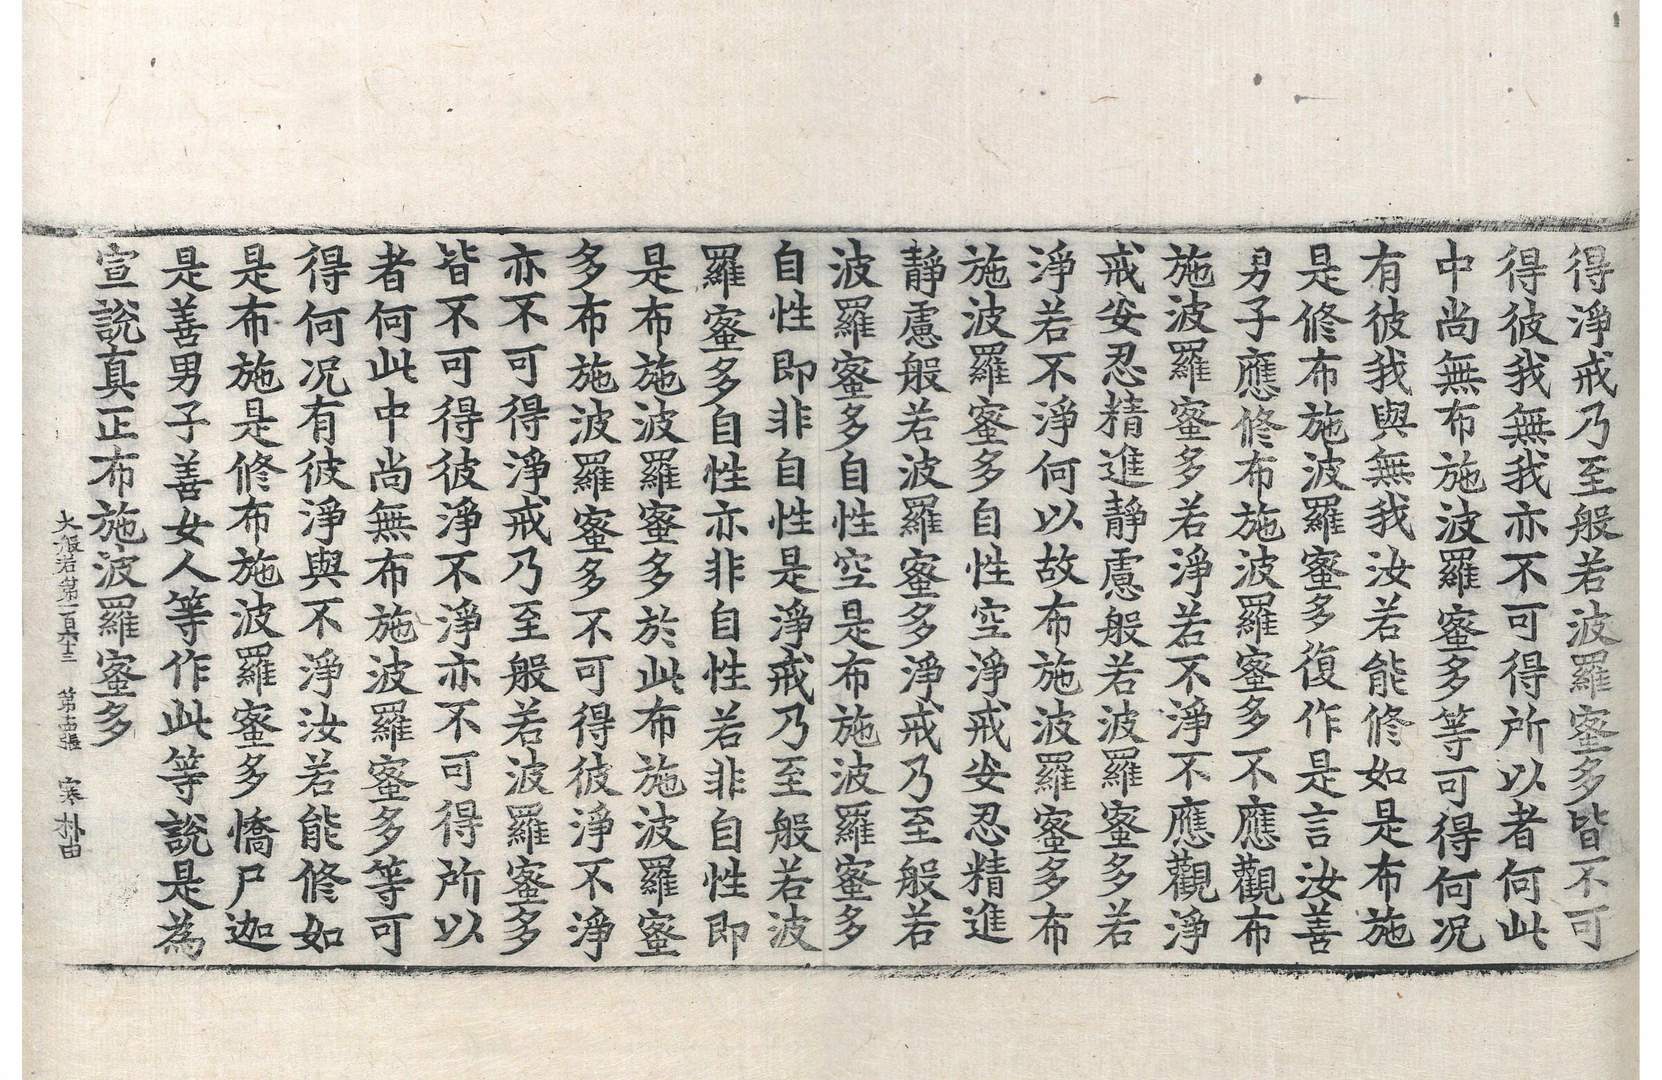 得淨戒乃至般若波羅蜜多皆不可
得彼我無我亦不可得所以者何此
中尚無布施波羅蜜多等可得何况
有彼我與無我汝若能修如是布施
是修布施波羅蜜多復作是言汝善
男子應修布施波羅蜜多不應觀布
施波羅蜜多若淨若不淨不應觀淨
戒安忍精進靜慮般若波羅蜜多若
淨若不淨何以故布施波羅蜜多布
施波羅蜜多自性空淨戒安忍精進
靜慮般若波羅蜜多淨戒乃至般若
波羅蜜多自性空是布施波羅蜜多
自性即非自性是淨戒乃至般若波
羅蜜多自性亦非自性若非自性即
是布施波羅蜜多於此布施波羅蜜
多布施波羅蜜多不可得彼淨不淨
亦不可得淨戒乃至般若波羅蜜多
皆不可得彼淨不淨亦不可得所以
者何此中尚無布施波羅蜜多等可
得何况有彼淨與不淨汝若能修如
是布施是修布施波羅蜜多憍尸迦
是善男子善女人等作此等說是為
宣說真正布施波羅蜜多
大般若第一百六十三 第 張 寒 朴由